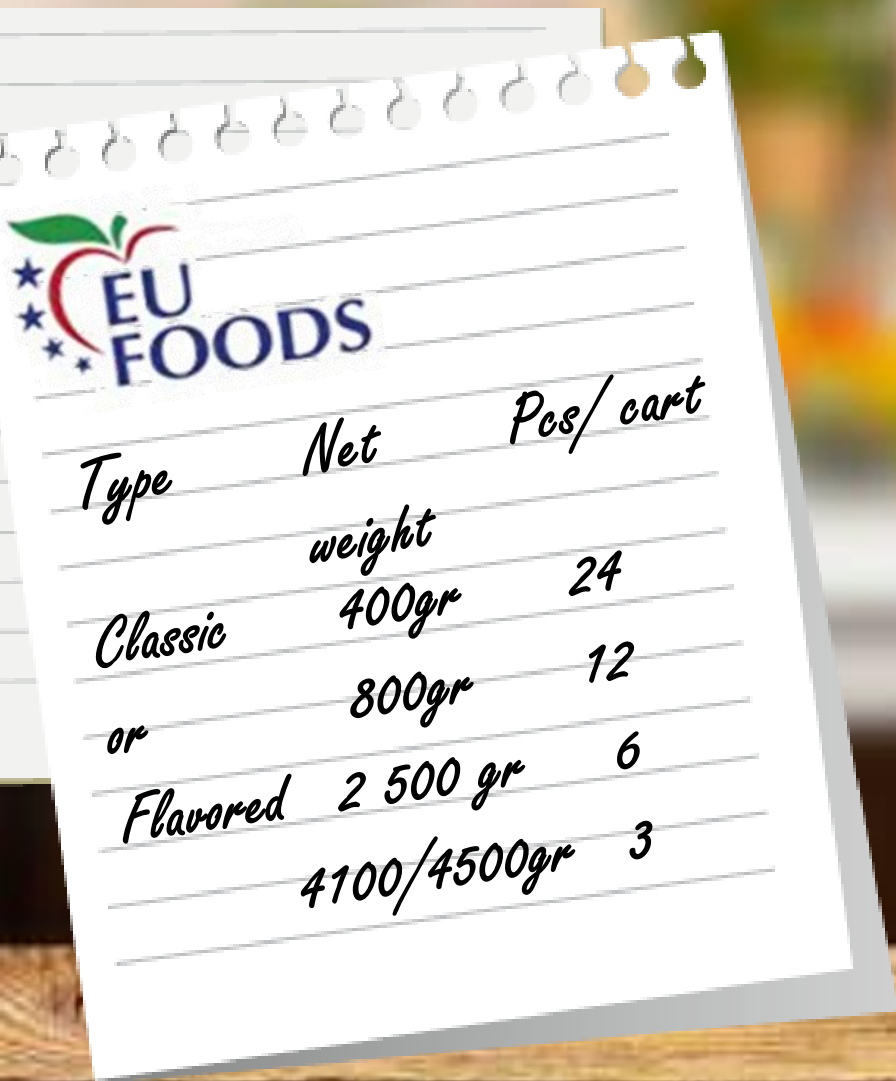 EU
FOODS
Type Net Pcs/ cart
weight
Classic 400gr 24
or 800gr 12
Flavored 2 500 gr 6
4100/4500gr 3